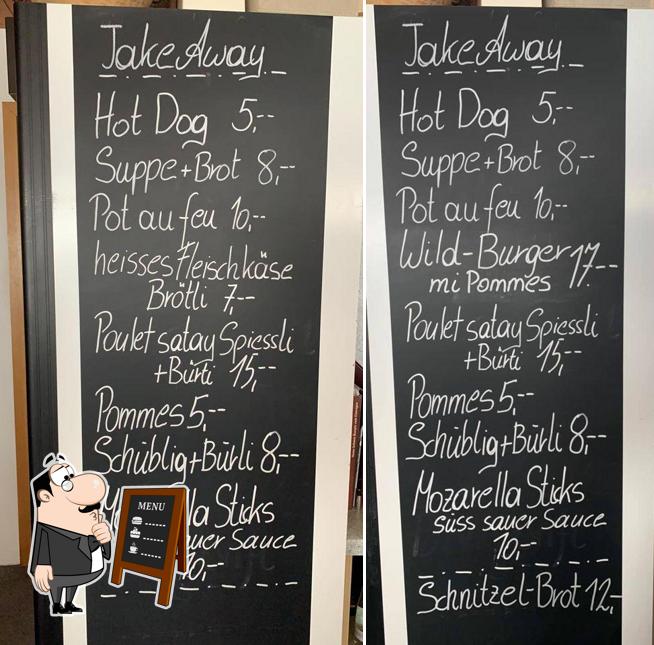 Take Away
Hot Dog 5,--
Suppe + Brot 8,--
Pot au feu 10,--
heisses Fleischkäse
Brötli 7,--
Poulet satay Spiessli
+ Bürli 15,--
Pommes 5,--
Schüblig + Bürli 8,--
la Sticks
uer Sauce
10,--
MENU
Take Away
Hot Dog 5,--
Suppe + Brot 8,--
Pot au feu 10,--
Wild-Burger 17.--
mi Pommes
Poulet satay Spiessli
+ Bürli 15,--
Pommes 5,--
Schüblig + Bürli 8,--
Mozarella Sticks
süss sauer Sauce
10,--
Schnitzel-Brot 12,-